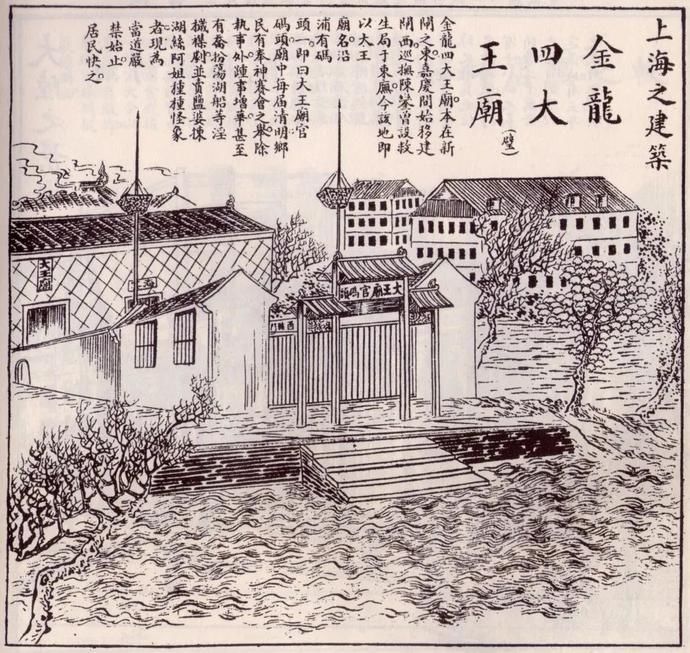 上海之建築
金龍
四大
王廟
(壁)
金龍四大王廟本在新
閘之東嘉慶間始移建
閘西巡撫陳鑾曾設救
生局于東廡今該地即
以大王
廟名沿
浦有碼
頭一即曰大王廟官
碼頭廟中每屆清明鄉
民有奉神賽會之舉除
執事外踵事增華甚至
有喬扮蕩湖船等淫
並賣鹽婆揀
湖絲阿姐種種怪象
者現為
當道嚴
禁始止
居民快之
大王廟
大王廟官碼頭
西轅門